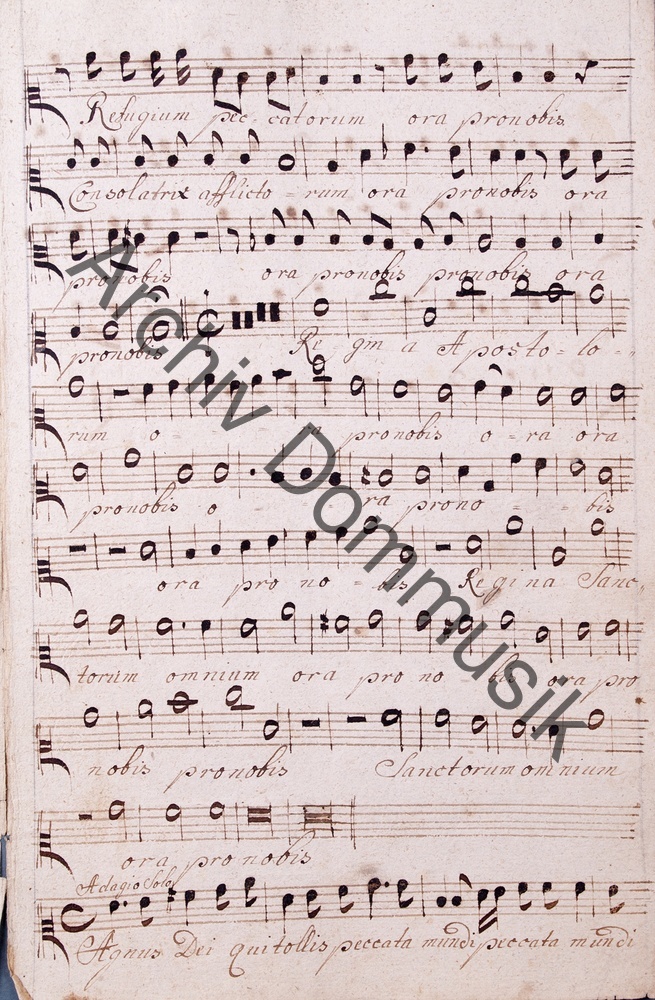 Refugium pec catorum ora pro nobis
Consolatrix afflicto - rum ora pronobis ora
pronobis ora pronobis pronobis ora
pronobis Re gin a Aposto - lo -
rum o - - - a pronobis o - ra ora
pronobis o - - - ra prono - - bis
ora pro no - bis Regina Sanc -
torum omnium ora pro no - bis ora pro
nobis pronobis Sanctorum omnium
ora pro nobis
Adagio Solo
Agnus Dei qui tollis peccata mundi peccata mundi
Archiv Dommusik